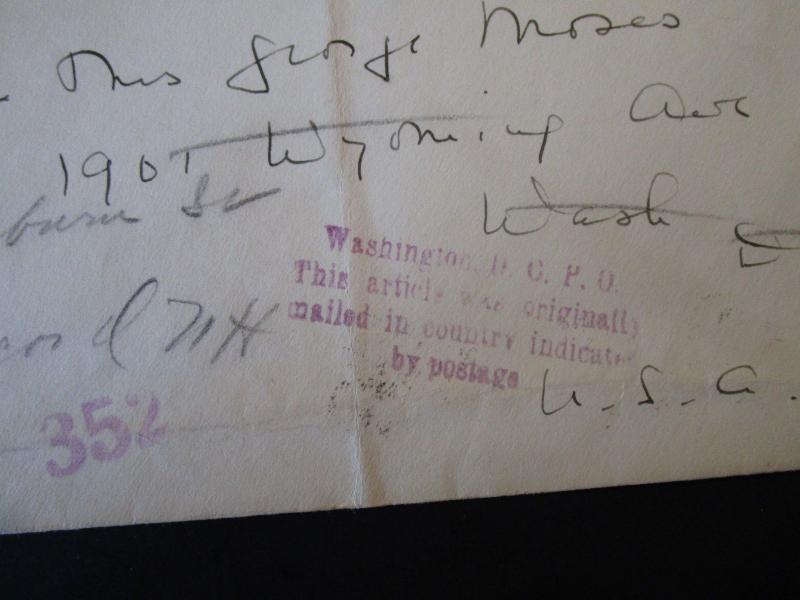 Mrs George Moses
1901 Wyoming Ave
burn St
Wash
Washington, D. C. P. O.
This article was originally
mailed in country indicated
by postage
ord NH
U.S.A.
352